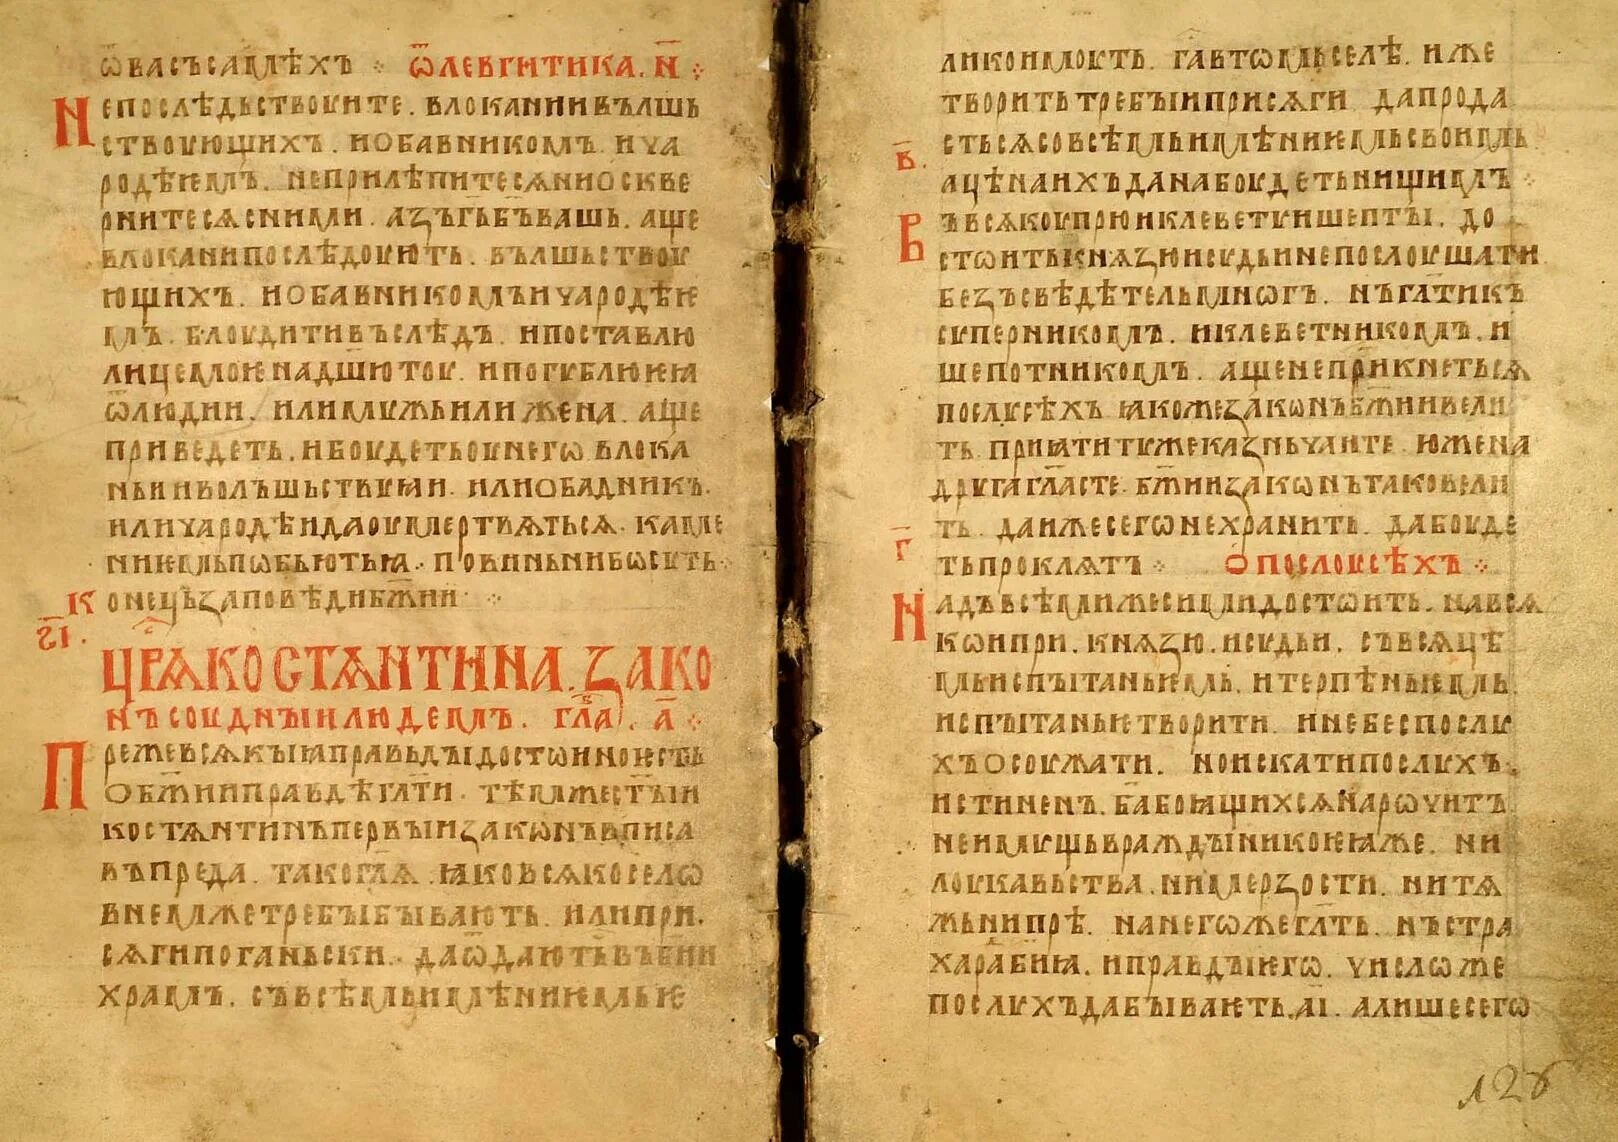 ѿвасъсамѣхъ ⁘ ѿлевгитика. н҃ ⁘
Непослѣдьствоуите. влоканиивълшь
ствоующихъ. иобавникомъ. ича
родѣѥмъ. неприлѣпитесѧниоскве
рнитесѧсними. азъгь҃бъ҃вашь. аще
влоканипослѣдоують. вълшьствоу
ющихъ. иобавникомъичародѣѥ
мъ. блоудитивъслѣдъ. ипоставлю
лицемоѥнадш҃ютоу. ипогублюꙗ
ѿлюдии. илимужьилижена. аще
приведеть. ибоудетьоунегѡ влока
ньииволъшьствуꙗи. илиобадникъ.
иличародѣидаоумертвѧтьсѧ. каме
ниѥмьпобьютьꙗ. повиньнибосуть.
Конецьзаповѣдиб҃жии ⁘
г҃і.
Цр҃ѧкостѧнтина. зако
нъсоудныилюдемъ. гла҃в. а҃ ⁘
Прежевсѧкыꙗправьдыдостѡиноѥсть
об҃жиипривдѣгл҃ти. тѣмжест҃ыи
костѧнтинъпервыизаконъвписа
въпреда. такогл҃ѧ. ꙗковсѧкоселѡ
внемжетребыбывають. илипри.
сѧгипоганьски. даѿдаютьвъб҃ии
храмъ. съвсѣмьимѣниѥмьѥ
ликоимоуть. г҃автомьселѣ. иже
творитьтребыиприсѧги дапрода
стьсѧсовсѣмьимѣниѥмьсвоимь.
в҃.
ацѣнаихъданабоудетьнищимъ ⁘
Въвсѧкоупрюиклеветуишепты. до
стѡитькнѧзюисудьинепослоушати
безъсвѣдѣтельмногъ. нъгл҃тикъ
суперникомъ. иклеветникомъ. и
шепотникомъ. ащенепрікнетьсѧ
послусѣхъ ꙗкожезаконъб҃жиивели
ть. приꙗтитужеказньчаите. юженa
другагл҃асте. б҃жиизаконътаковели
ть. даижесегѡнехранить. дабоуде
г҃
тьпроклѧтъ ⁘ Опослоусѣхъ ⁘
Надъвсѣмижесимидостѡить. навсѧ
кѡипри. кнѧзю. исудьи. съвсѧцѣ
мьиспытаньѥмь. итерпѣньѥмь.
испытаньѥтворити. инебеспослу
хъосоужати. ноискатипослухъ.
истиненъ. ба҃боꙗщихсѧнарѡчитъ
неимущьвраждыникоѥꙗже. ни
лоукавьства. нимерзости. нитѧ
жьнипрѣ. нанегѡжегл҃ть. нъстра
харабиꙗ. иправдыѥгѡ. числѡже
послухъдабываѥть. а҃і. алишесегѡ
128